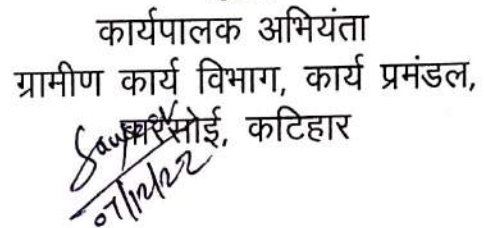 कार्यपालक अभियंता
ग्रामीण कार्य विभाग, कार्य प्रमंडल,
बारसोई, कटिहार
07/12/22